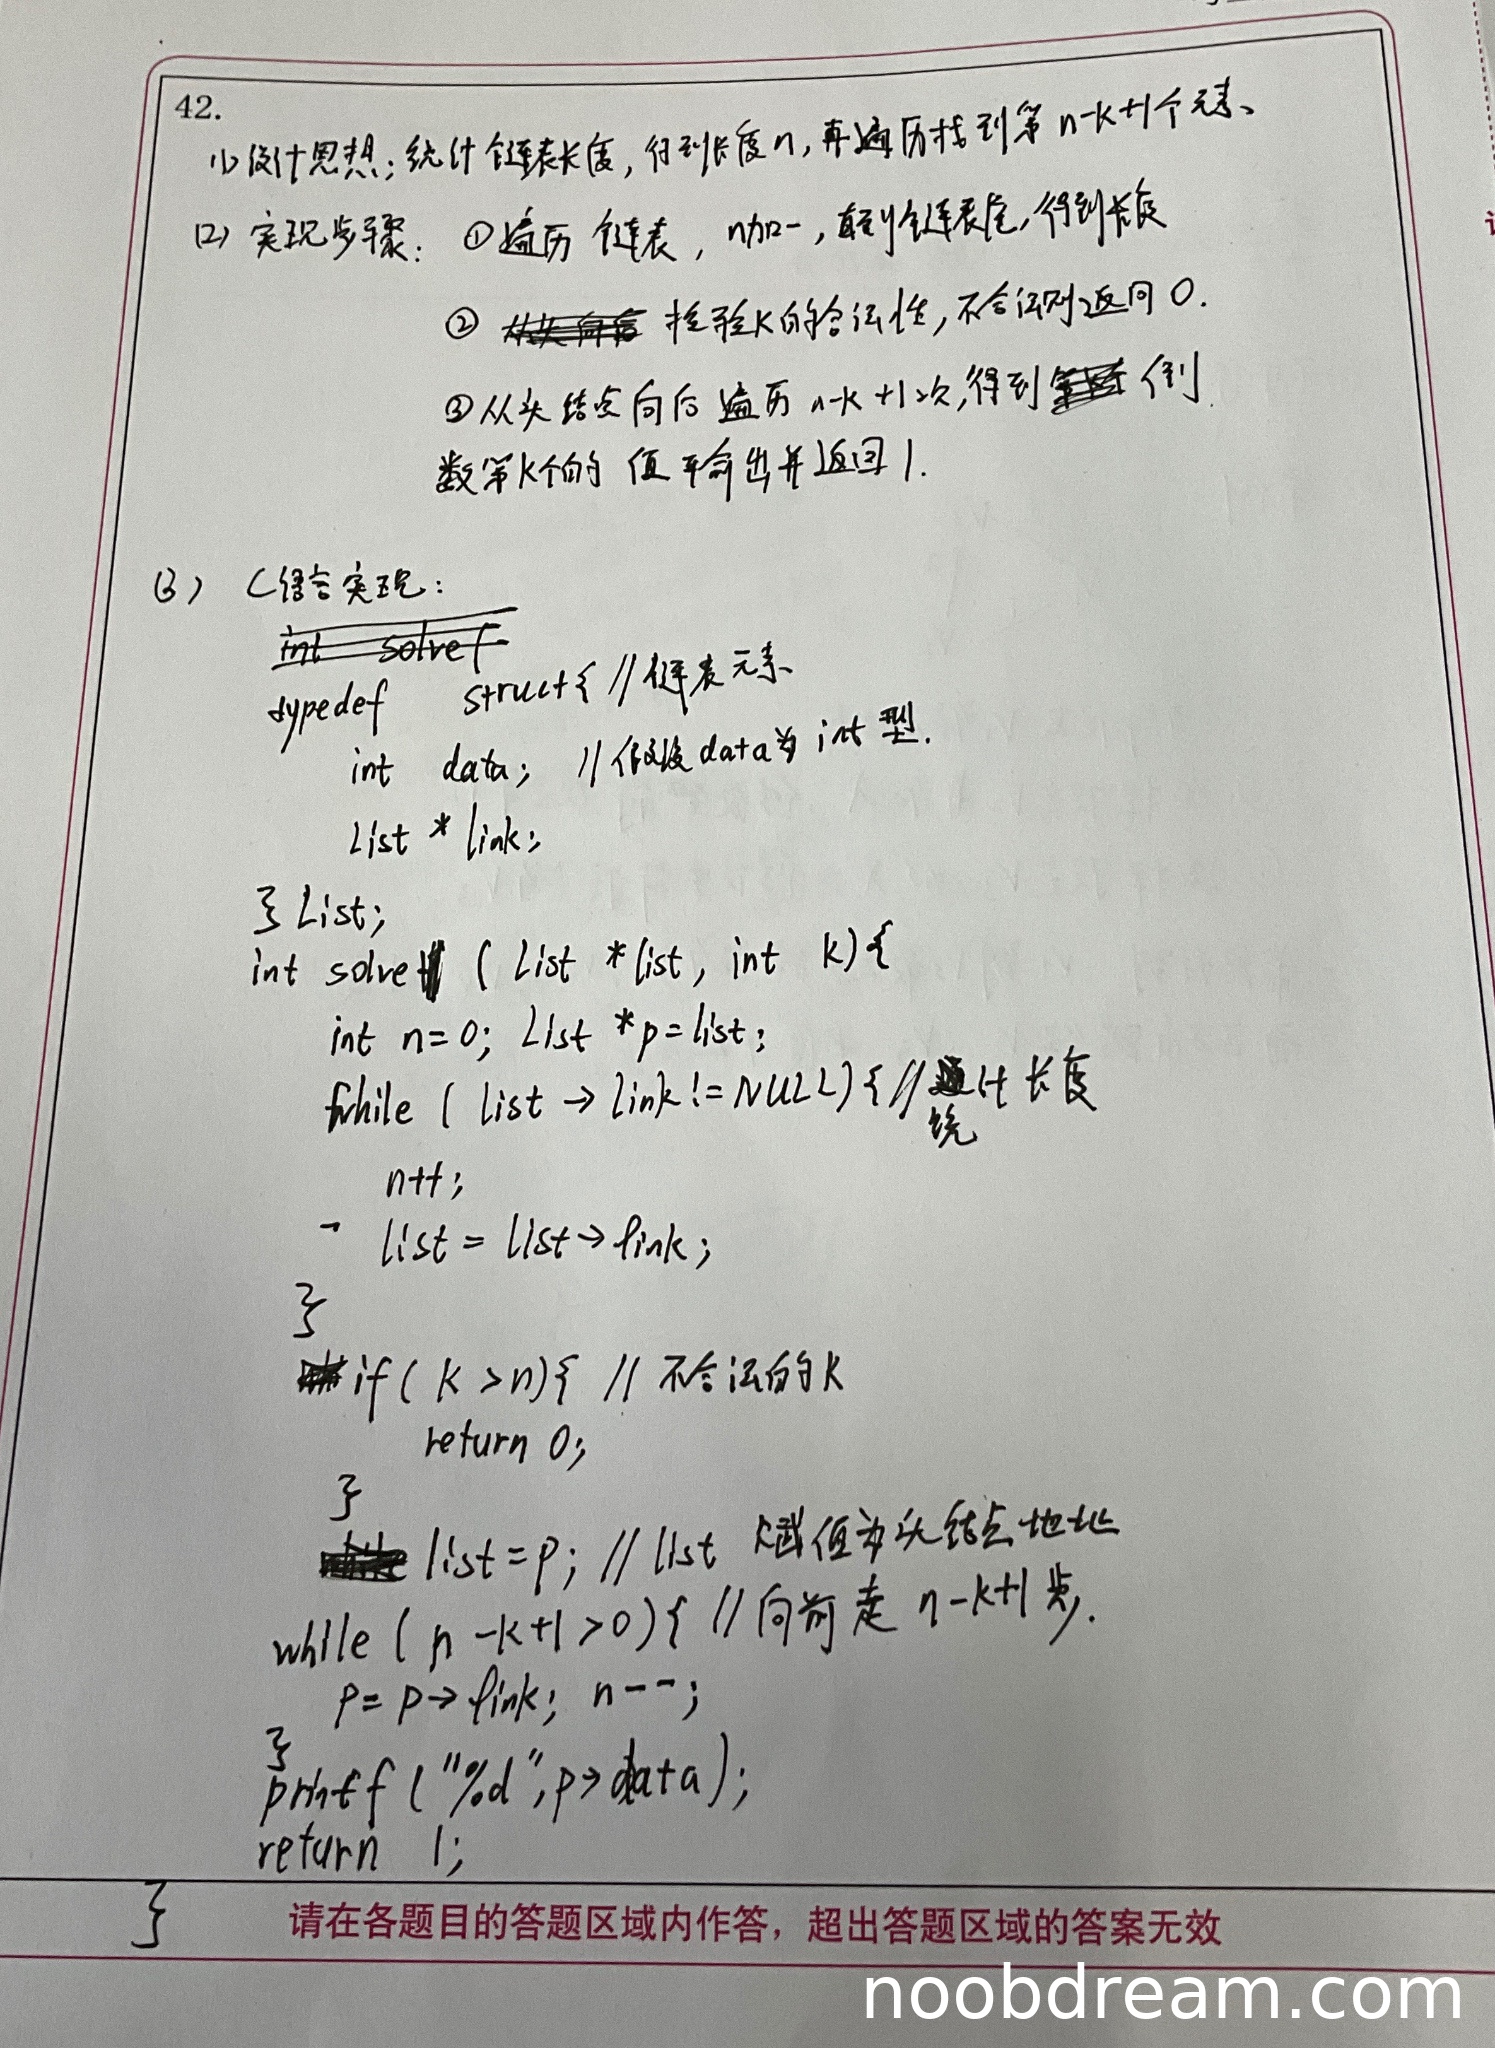 42.
(1) 设计思想：统计链表长度，得到长度n，再遍历找到第n-k+1个元素、
(2) 实现步骤：①遍历链表，n加一，直到链表尾，得到长度
② 检验K的合法性，不合法则返回0.
③从头结点向后遍历n-k+1次，得到倒
数第K个的值 输出并返回1.
(3) C语言实现：
int solve(
typedef struct{ //链表元素、
int data; //假设data为int型.
List *link;
} List;
int solve (List *list, int k){
int n=0; List *p=list;
while (list->link!=NULL){ //统计长度
n++;
list = list->link;
}
if(k>n){ //不合法的K
return 0;
}
list=p; //list 赋值为头结点地址
while (n-k+1>0){ //向前走n-k+1步.
p=p->link; n--;
}
printf("%d",p->data);
return 1;
}
请在各题目的答题区域内作答，超出答题区域的答案无效
noobdream.com